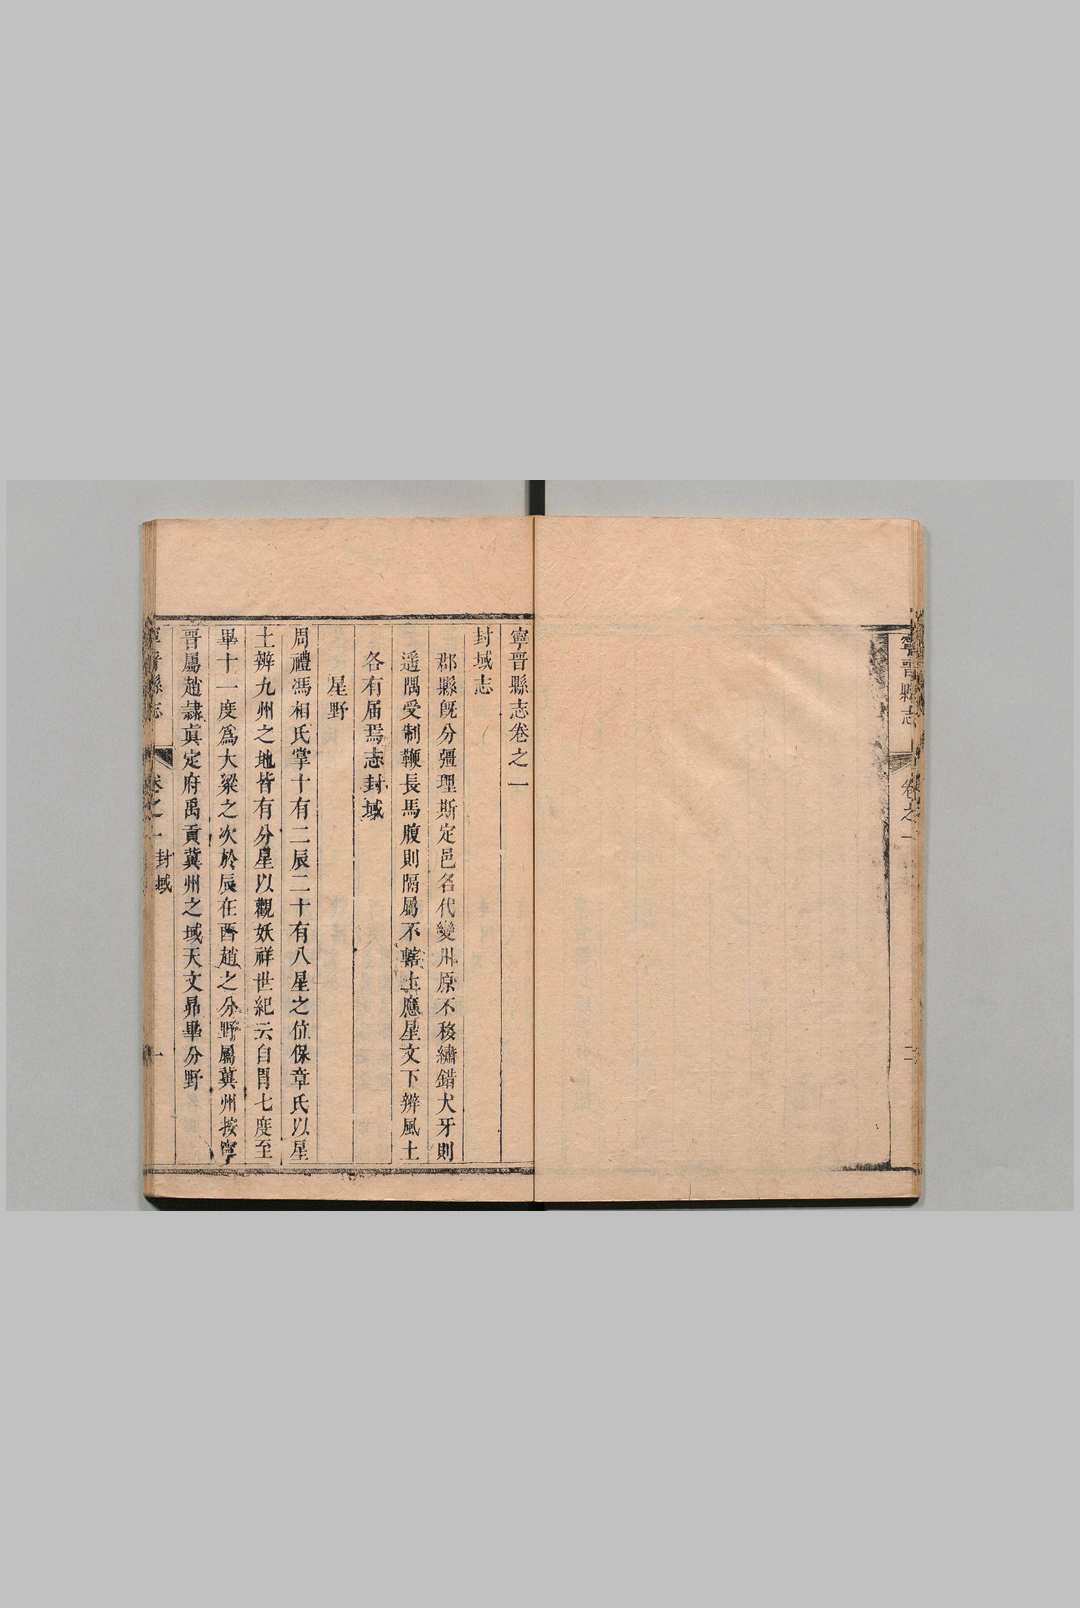 寧晋縣志
卷之一
二
寧晋縣志卷之一
封域志
郡縣旣分彊理斯定邑名代變川原不移繡錯犬牙則
遥隅受制鞭長馬腹則隔屬不轄上應星文下辨風土
各有届焉志封域
星野
周禮馮相氏掌十有二辰二十有八星之位保章氏以星
土辨九州之地皆有分星以觀妖祥世紀云自胃七度至
畢十一度為大梁之次於辰在酉趙之分野屬冀州按寧
晋屬趙隷眞定府禹貢冀州之域天文昴畢分野
寧晋縣志
卷之一
封域
一